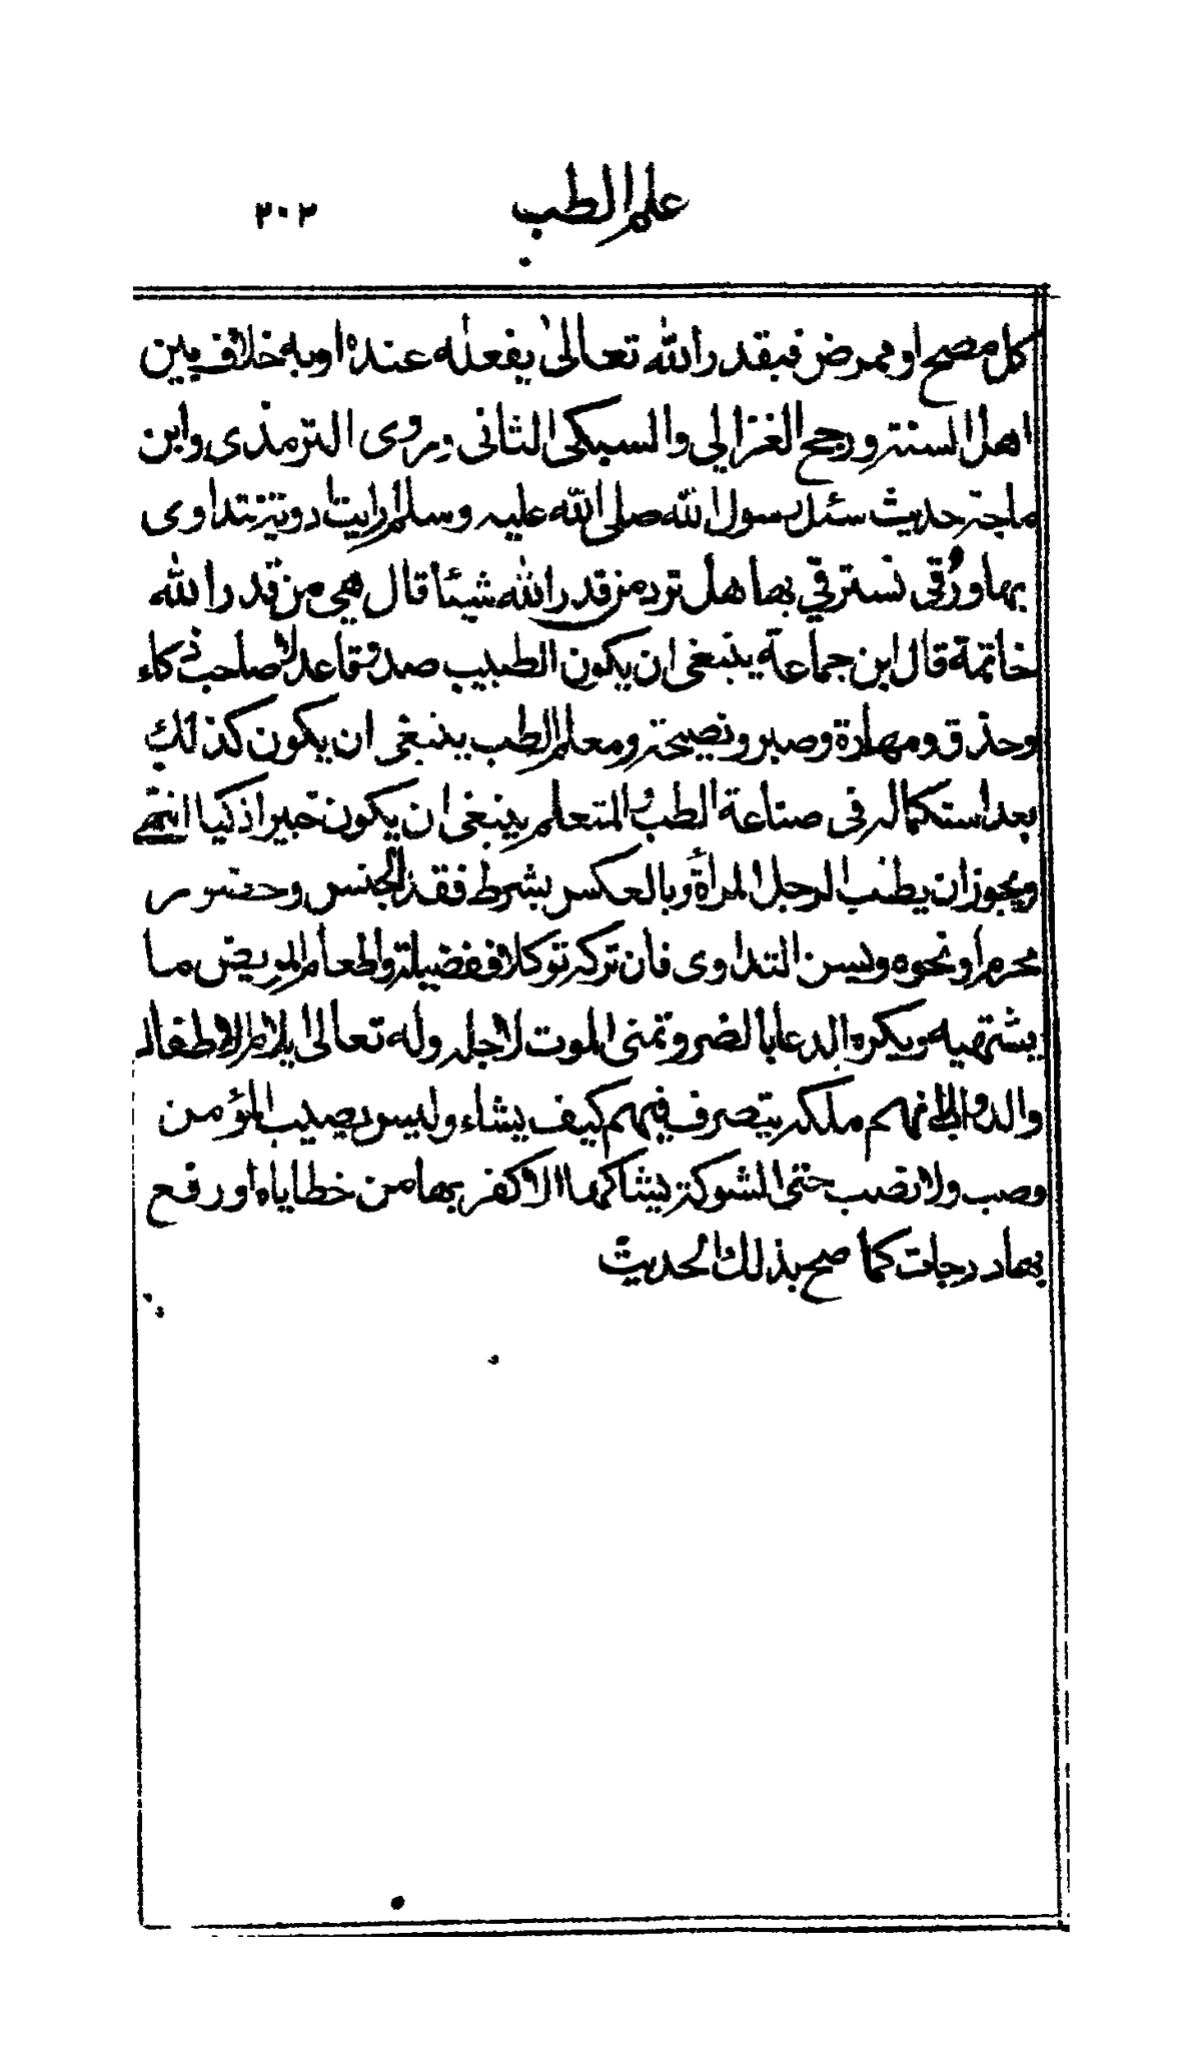 علم الطب ٢٠٢
كل مصح او ممرض فبقدر الله تعالى يفعله عنده او به خلاف بين
اهل السنة ورجح الغزالي والسبكى الثانى وروى الترمذى وابن
ماجة حديث سئل رسول الله صلى الله عليه وسلم ارايت ادوية نتداوى
بها ورُقى نسترقي بها هل ترد من قدر الله شيئا قال هي من قدر الله
خاتمة قال ابن جماعة ينبغى ان يكون الطبيب صدوقا عدلا صاحب ذكاء
وحذق ومهارة وصبر ونصيحة ومعلم الطب ينبغى ان يكون كذلك
بعد استكماله فى صناعة الطب والمتعلم ينبغى ان يكون خبيرا ذكيا انتهى
ويجوز ان يطبب الرجل المرأة وبالعكس بشرط فقد الجنس وحضور
محرم أو نحوه ويسن التداوى فان تركه توكلا ففضيلة واطعام المريض ما
يشتهيه ويكره الدعا بالضر وتمنى الموت لاجله وله تعالى ايلام الاطفال
والدواب لانهم ملكه يتصرف فيهم كيف يشاء وليس يصيب المؤمن
وصب ولا نصب حتى الشوكة يشاكها الا كفر بها من خطاياه او رفع
بها درجات كما صح بذلك الحديث